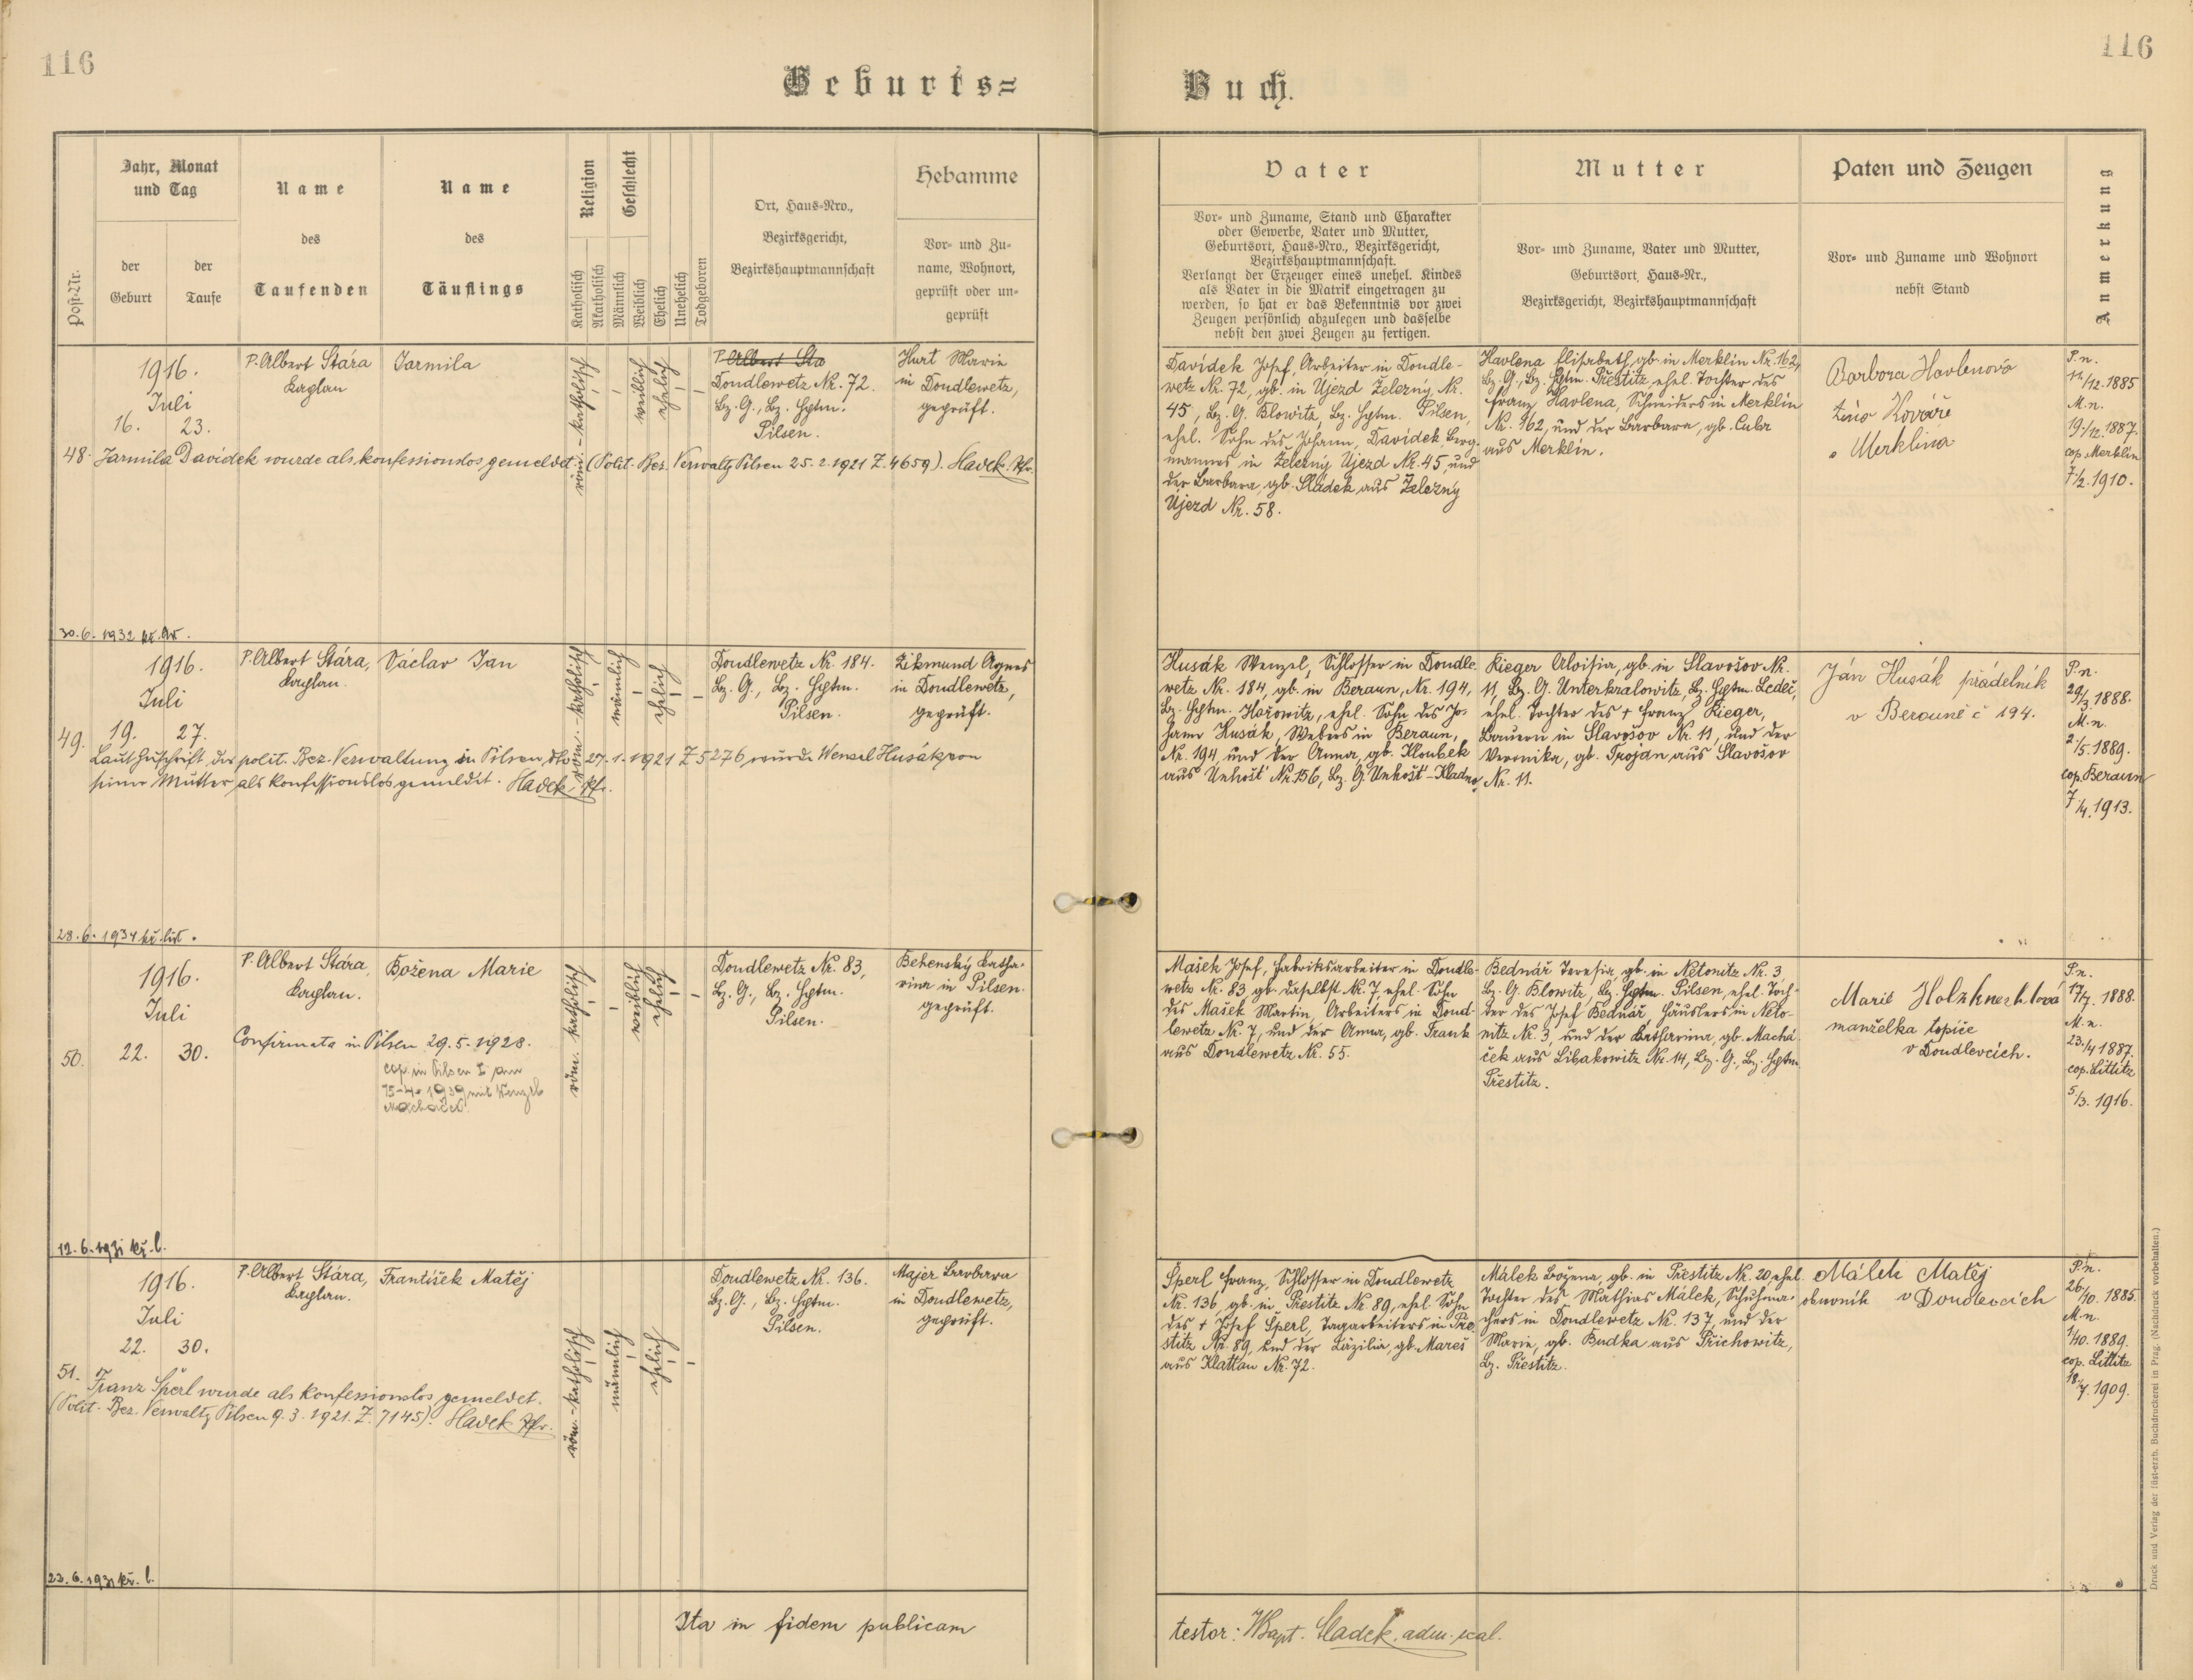 116
116
Geburts=
Buch.
Post-Nr.
Jahr, Monat
und Tag
der
Geburt
der
Taufe
Name
des
Taufenden
Name
des
Täuflings
Religion
Katholisch
Akatholisch
Geschlecht
Männlich
Weiblich
Ehelich
Unehelich
Todgeboren
Ort, Haus-Nro.,
Bezirksgericht,
Bezirkshauptmannschaft
Hebamme
Vor- und Zu-
name, Wohnort,
geprüft oder un-
geprüft
Vater
Vor- und Zuname, Stand und Charakter
oder Gewerbe, Vater und Mutter,
Geburtsort, Haus-Nro., Bezirksgericht,
Bezirkshauptmannschaft.
Verlangt der Erzeuger eines unehel. Kindes
als Vater in die Matrik eingetragen zu
werden, so hat er das Bekenntnis vor zwei
Zeugen persönlich abzulegen und dasselbe
nebst den zwei Zeugen zu fertigen.
Mutter
Vor- und Zuname, Vater und Mutter,
Geburtsort, Haus-Nr.,
Bezirksgericht, Bezirkshauptmannschaft
Paten und Zeugen
Vor- und Zuname und Wohnort
nebst Stand
Anmerkung
1916.
Juli
16. 23.
48.
P. Albert Stára
Kaplan
Jarmila
röm.-katholisch
weiblich
ehelich
P. Albert Sta
Doudlewetz Nr. 72.
Bz. G., Bz. Hptm.
Pilsen.
Hurt Marie
in Doudlewetz,
geprüft.
Jarmila Davídek wurde als konfessionslos gemeldet (Polit. Bez. Verwaltg Pilsen 25.2.1921 Z. 4659). Hadek, Pfr.
30.6.1932
Davídek Josef, Arbeiter in Doudle-
wetz Nr. 72, gb. in Újezd Železný, Nr.
45, Bz. G. Blowitz, Bz. Hptm. Pilsen,
ehel. Sohn des Johann Davídek, Berg-
mannes in Železný Újezd Nr. 45, und
der Barbara, gb. Sládek aus Železný
Újezd Nr. 58.
Havlena Elisabeth, gb. in Merklin Nr. 162,
Bz. G., Bz. Hptm. Přestitz, ehel. Tochter des
Franz Havlena, Schneiders in Merklin
Nr. 162, und der Barbara, gb. Cuba
aus Merklin.
Barbora Havlenová
žena Kováře
Merklína
P. n.
11/12. 1885
M. n.
19/12. 1887.
cop. Merklin
7/2. 1910.
1916.
Juli
19. 27.
49.
P. Albert Stára,
Kaplan.
Václav Jan
röm.-katholisch
männlich
ehelich
Doudlewetz Nr. 184.
Bz. G., Bz. Hptm.
Pilsen.
Zikmund Agnes
in Doudlewetz,
geprüft.
Laut Zuschrift der polit. Bez. Verwaltung in Pilsen, dto 27.1.1921 Z 5276 wurde Wenzel Husák von
seiner Mutter als konfessionslos gemeldet. Hadek, Pfr.
28.6.1934 kř. list.
Husák Wenzel, Schlosser in Doudle-
wetz Nr. 184, gb. in Beraun, Nr. 194,
Bz. Hptm. Hořowitz, ehel. Sohn des Jo-
hann Husák, Webers in Beraun,
Nr. 194 und der Anna, gb. Kloubek
aus Unhošt Nr. 156, Bz. G. Unhošt-Kladno
Rieger Aloisia, gb. in Slavošov Nr.
11, Bz. G. Unterkralowitz, Bz. Hptm. Ledeč,
ehel. Tochter des + Franz Rieger,
Bauern in Slavošov Nr. 11, und der
Veronika, gb. Trojan aus Slavošov
Nr. 11.
Ján Husák přádelník
v Berouně č 194.
P. n.
29/3. 1888.
M. n.
2/5. 1889.
cop. Beraun
7/4. 1913.
1916.
Juli
22. 30.
50.
P. Albert Stára,
Kaplan.
Božena Marie
röm. katholisch
weiblich
ehelich
Doudlewetz Nr. 83,
Bz. G., Bz. Hptm.
Pilsen.
Behenský Katha-
rina in Pilsen.
geprüft.
Confirmata in Pilsen 29.5.1928.
cop. in Pilsen I am
15-4-1939 mit Wenzel
Macháček.
12.6.1931 kř. l.
Mašek Josef, Fabriksarbeiter in Doudle-
wetz Nr. 83, gb. daselbst Nr. 7, ehel. Sohn
des Mašek Martin, Arbeiters in Doud-
lewetz Nr. 7, und der Anna, gb. Frank
aus Doudlewetz Nr. 55.
Bednář Teresia, gb. in Netonitz Nr. 3,
Bz. G. Blowitz, Bz. Hptm. Pilsen, ehel. Toch-
ter des Josef Bednář, Häuslers in Neto-
nitz Nr. 3, und der Katharina, gb. Machá-
ček aus Libakowitz Nr. 14, Bz. G., Bz. Hptm.
Přestitz.
Marie Holzknechtová
manželka topiče
v Doudlevcích.
P. n.
17/7. 1888.
M. n.
23./4 1887.
cop. Littitz
5/3. 1916.
1916.
Juli
22. 30.
51.
P. Albert Stára,
Kaplan.
František Matěj
röm.-katholisch
männlich
ehelich
Doudlewetz Nr. 136.
Bz. G., Bz. Hptm.
Pilsen.
Majer Barbara
in Doudlewetz,
geprüft.
Franz Šperl wurde als konfessionslos gemeldet.
(Polit. Bez. Verwaltg Pilsen 9.3.1921. Z. 7145). Hadek Pfr.
23.6.1931 kř. l.
Šperl Franz, Schlosser in Doudlewetz
Nr. 136, gb. in Přestitz Nr. 89, ehel. Sohn
des + Josef Šperl, Tagarbeiters in Pře-
stitz Nr. 89, und der Zäzilia, gb. Mareš
aus Klattau Nr. 72.
Málek Božena, gb. in Přestitz Nr. 20, ehel.
Tochter des Mathias Málek, Schuhma-
chers in Doudlewetz Nr. 137, und der
Marie, gb. Budka aus Přichowitz,
Bz. Přestitz.
Málek Matěj
obuvník v Doudlevcích
P. n.
26/10. 1885.
M. n.
1/10. 1889.
cop. Littitz
18./7. 1909.
Ita in fidem publicam
testor: Hadek, adm.
Druck und Verlag der fürst-erzb. Buchdruckerei in Prag. (Nachdruck vorbehalten.)